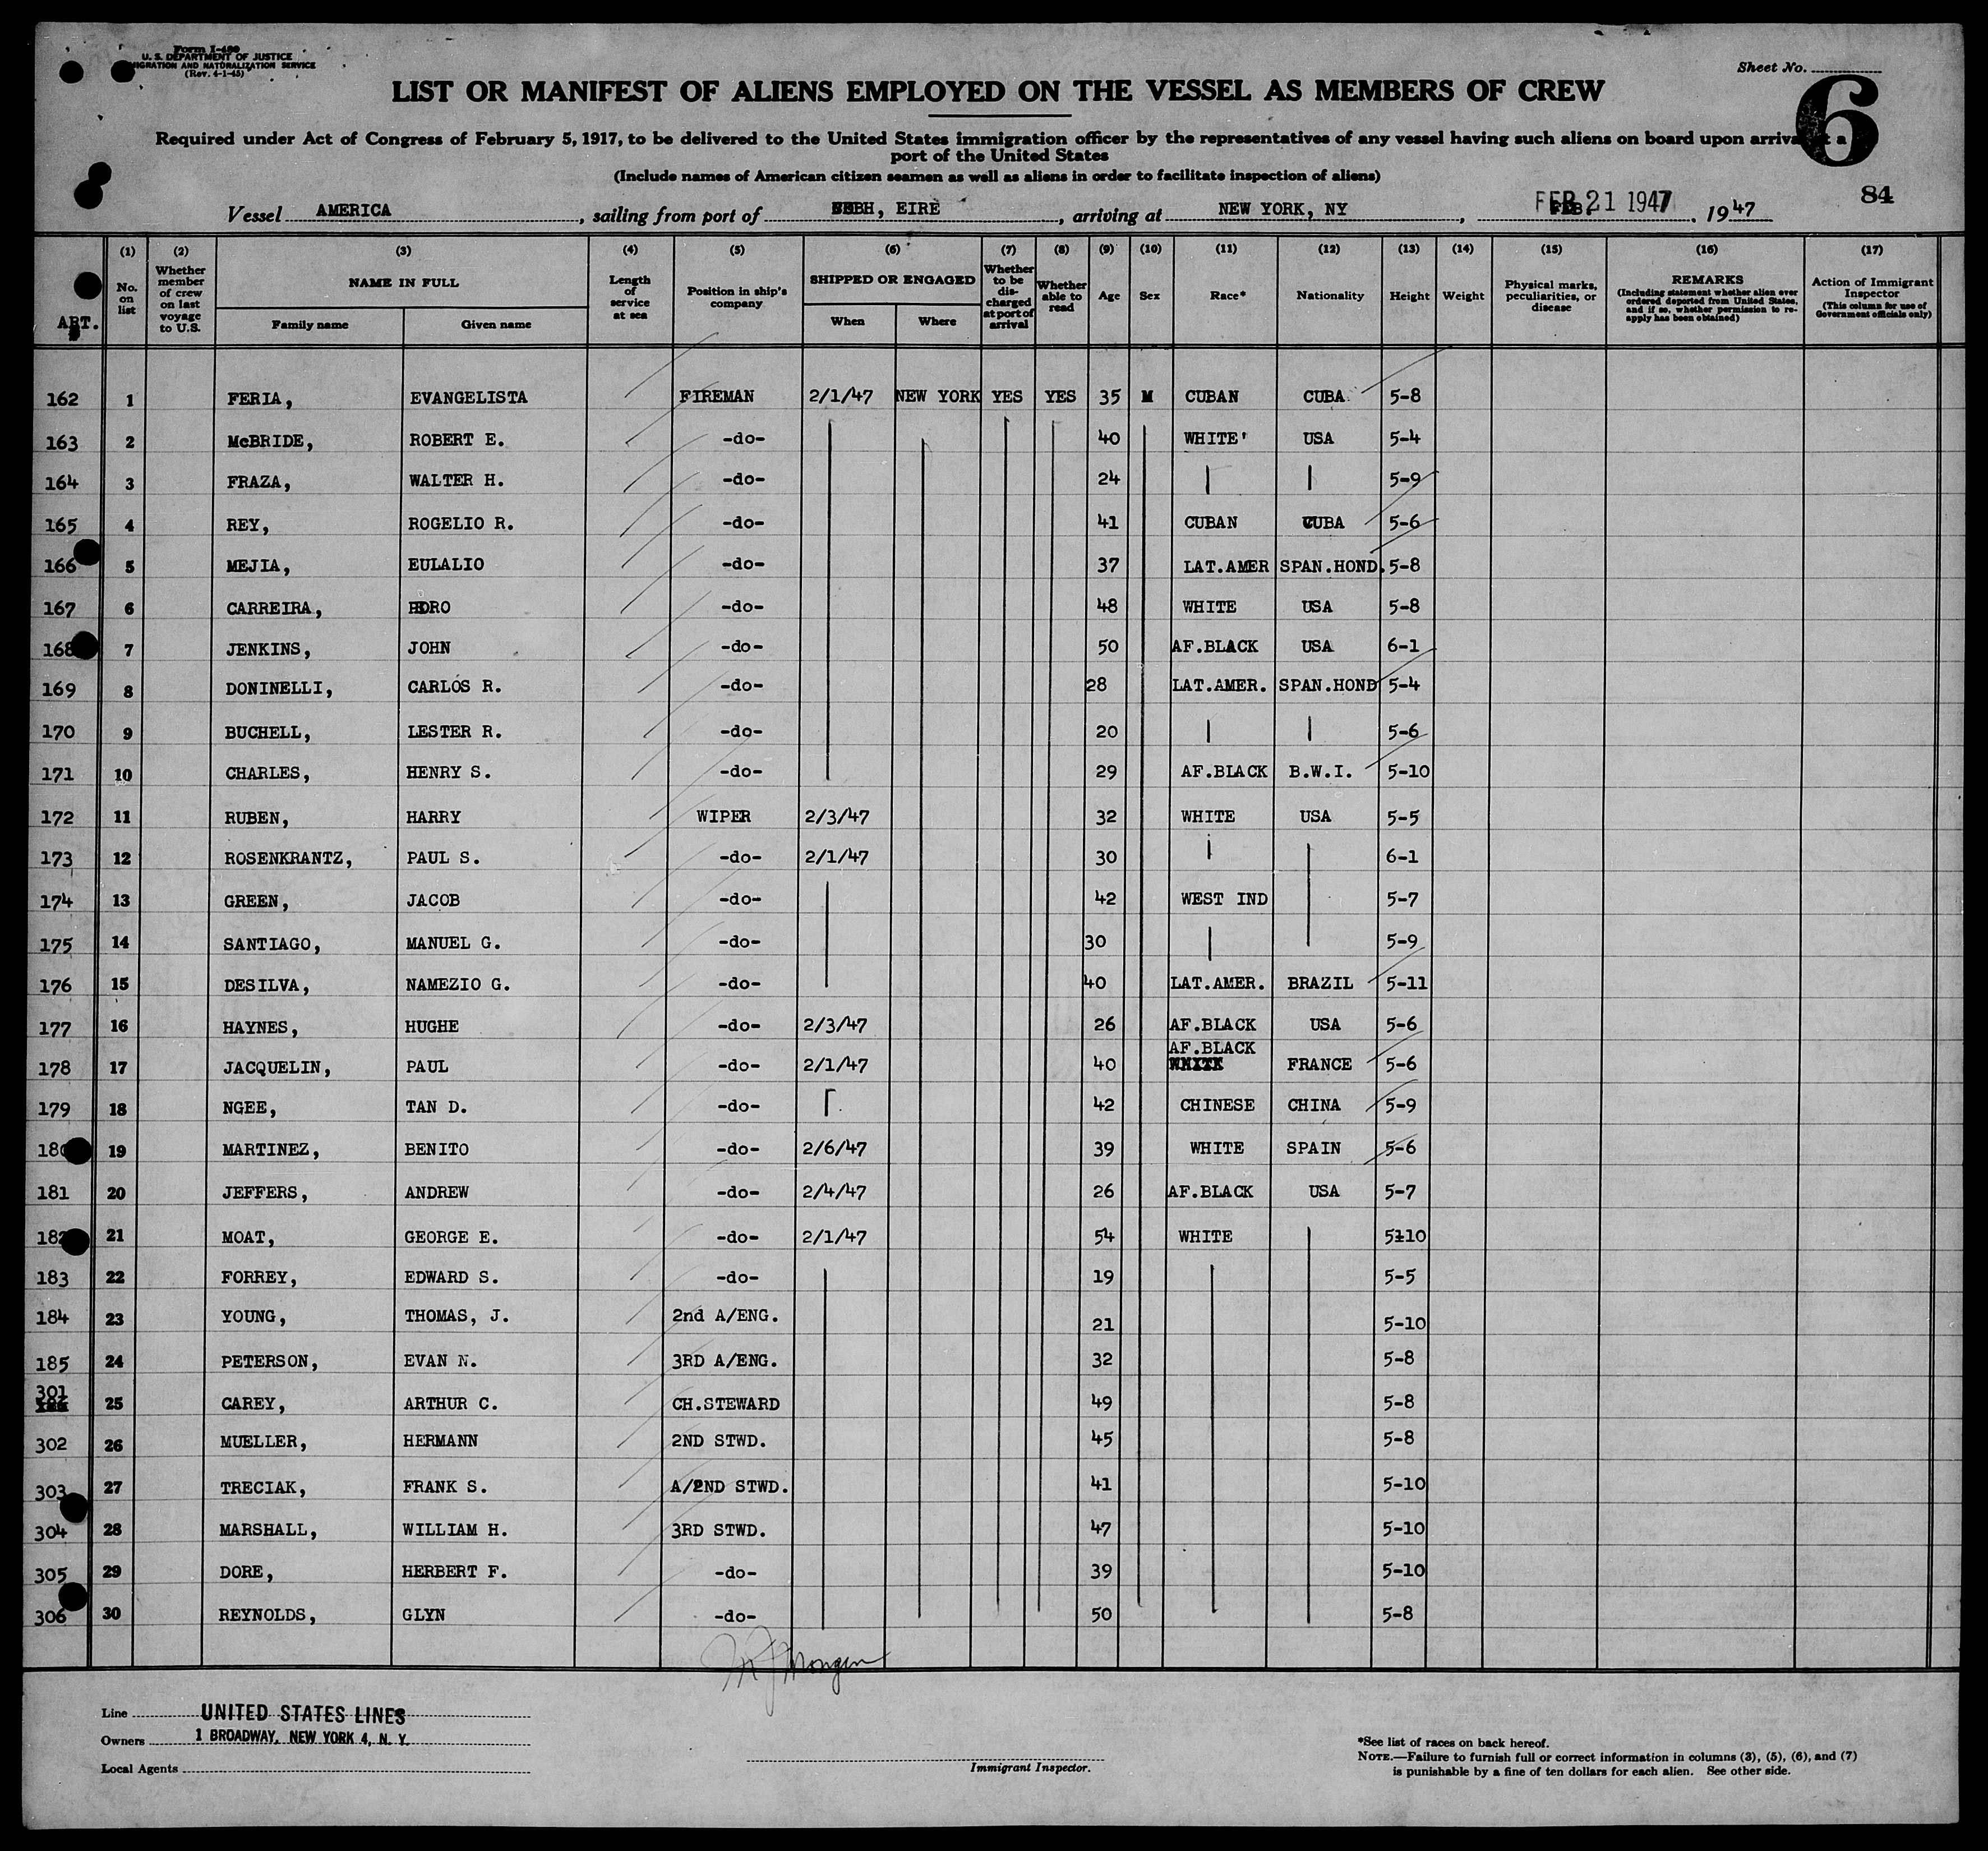 Form I-489
U. S. DEPARTMENT OF JUSTICE
IMMIGRATION AND NATURALIZATION SERVICE
(Rev. 4-1-45)
Sheet No.
6
LIST OR MANIFEST OF ALIENS EMPLOYED ON THE VESSEL AS MEMBERS OF CREW
Required under Act of Congress of February 5, 1917, to be delivered to the United States immigration officer by the representatives of any vessel having such aliens on board upon arrival at a
port of the United States
(Include names of American citizen seamen as well as aliens in order to facilitate inspection of aliens)
84
Vessel AMERICA, sailing from port of EIRE, arriving at NEW YORK, NY, FEB 21 1947, 1947
ART. (1) No. on list (2) Whether member of crew on last voyage to U.S. (3) NAME IN FULL Family name Given name (4) Length of service at sea (5) Position in ship's company (6) SHIPPED OR ENGAGED When Where (7) Whether to be discharged at port of arrival (8) Whether able to read (9) Age (10) Sex (11) Race* (12) Nationality (13) Height (14) Weight (15) Physical marks, peculiarities, or disease (16) REMARKS (Including statement whether alien ever ordered deported from United States, and if so, whether permission to re-apply has been obtained) (17) Action of Immigrant Inspector (This column for use of Government officials only)
162 1 FERIA, EVANGELISTA FIREMAN 2/1/47 NEW YORK YES YES 35 M CUBAN CUBA 5-8
163 2 McBRIDE, ROBERT E. -do- 40 WHITE' USA 5-4
164 3 FRAZA, WALTER H. -do- 24 5-9
165 4 REY, ROGELIO R. -do- 41 CUBAN CUBA 5-6
166 5 MEJIA, EULALIO -do- 37 LAT.AMER SPAN.HOND. 5-8
167 6 CARREIRA, -do- 48 WHITE USA 5-8
168 7 JENKINS, JOHN -do- 50 AF.BLACK USA 6-1
169 8 DONINELLI, CARLOS R. -do- 28 LAT.AMER. SPAN.HOND 5-4
170 9 BUCHELL, LESTER R. -do- 20 5-6
171 10 CHARLES, HENRY S. -do- 29 AF.BLACK B.W.I. 5-10
172 11 RUBEN, HARRY WIPER 2/3/47 32 WHITE USA 5-5
173 12 ROSENKRANTZ, PAUL S. -do- 2/1/47 30 6-1
174 13 GREEN, JACOB -do- 42 WEST IND 5-7
175 14 SANTIAGO, MANUEL G. -do- 30 5-9
176 15 DESILVA, NAMEZIO G. -do- 40 LAT.AMER. BRAZIL 5-11
177 16 HAYNES, HUGHE -do- 2/3/47 26 AF.BLACK USA 5-6
178 17 JACQUELIN, PAUL -do- 2/1/47 40 AF.BLACK WHITE FRANCE 5-6
179 18 NGEE, TAN D. -do- 42 CHINESE CHINA 5-9
180 19 MARTINEZ, BENITO -do- 2/6/47 39 WHITE SPAIN 5-6
181 20 JEFFERS, ANDREW -do- 2/4/47 26 AF.BLACK USA 5-7
182 21 MOAT, GEORGE E. -do- 2/1/47 54 WHITE 5-10
183 22 FORREY, EDWARD S. -do- 19 5-5
184 23 YOUNG, THOMAS, J. 2nd A/ENG. 21 5-10
185 24 PETERSON, EVAN N. 3RD A/ENG. 32 5-8
301 25 CAREY, ARTHUR C. CH.STEWARD 49 5-8
302 26 MUELLER, HERMANN 2ND STWD. 45 5-8
303 27 TRECIAK, FRANK S. A/2ND STWD. 41 5-10
304 28 MARSHALL, WILLIAM H. 3RD STWD. 47 5-10
305 29 DORE, HERBERT F. -do- 39 5-10
306 30 REYNOLDS, GLYN -do- 50 5-8
Line UNITED STATES LINES
Owners 1 BROADWAY, NEW YORK 4, N. Y.
Local Agents
Immigrant Inspector.
*See list of races on back hereof.
NOTE.—Failure to furnish full or correct information in columns (3), (5), (6), and (7)
is punishable by a fine of ten dollars for each alien. See other side.